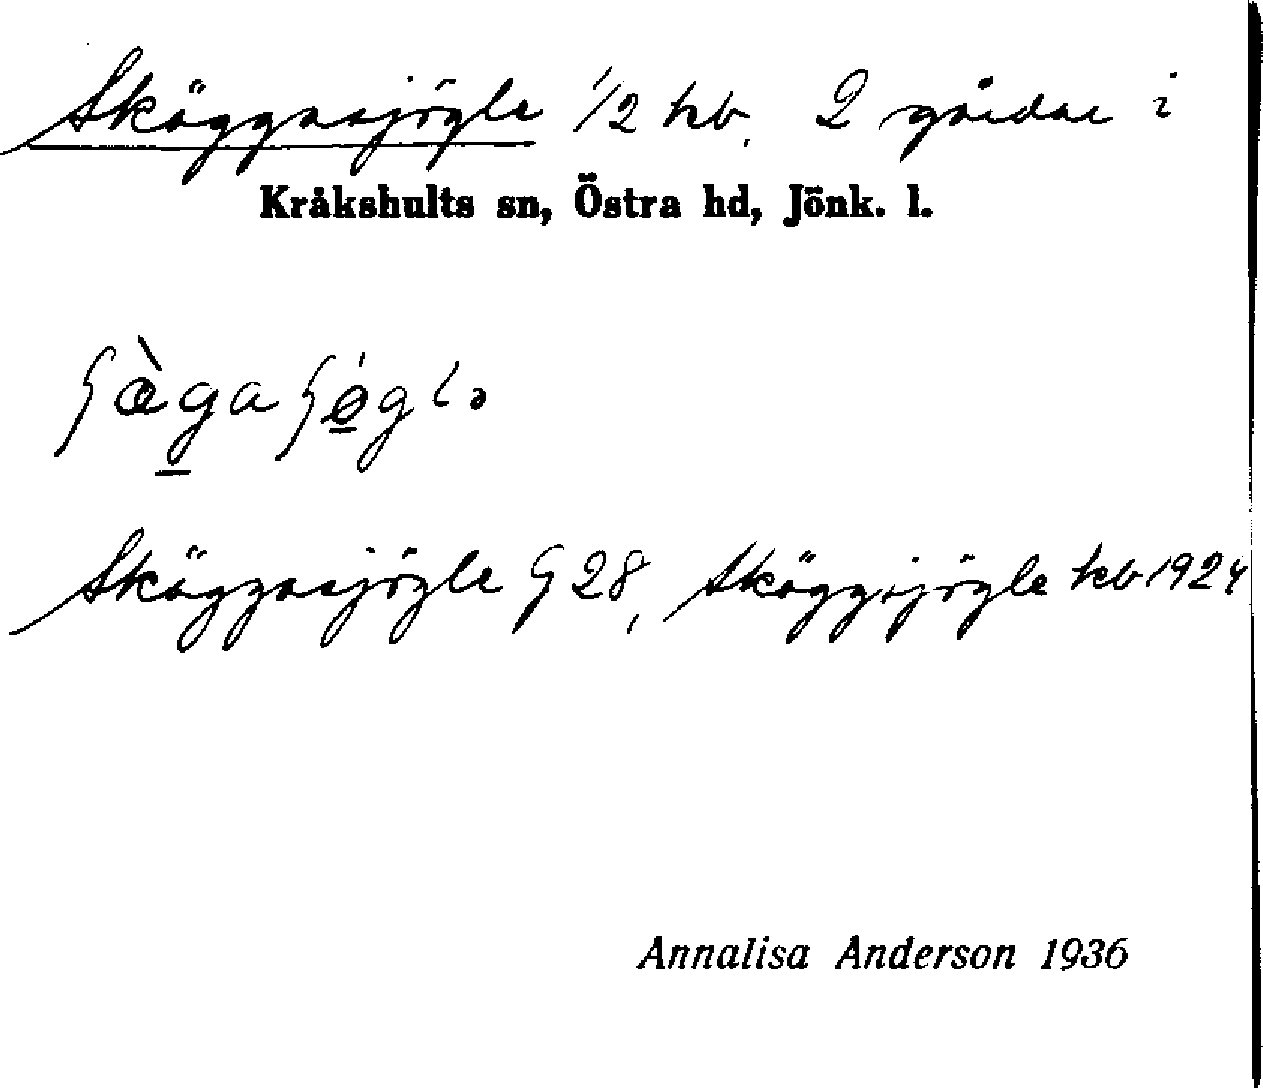 Skäggasjögle 1/2 hb. 2 gårdar i
Kråkshults sn, Östra hd, Jönk. l.
Skäggasjögle G 28, Skäggsjögle kb 1924
Annalisa Anderson 1936